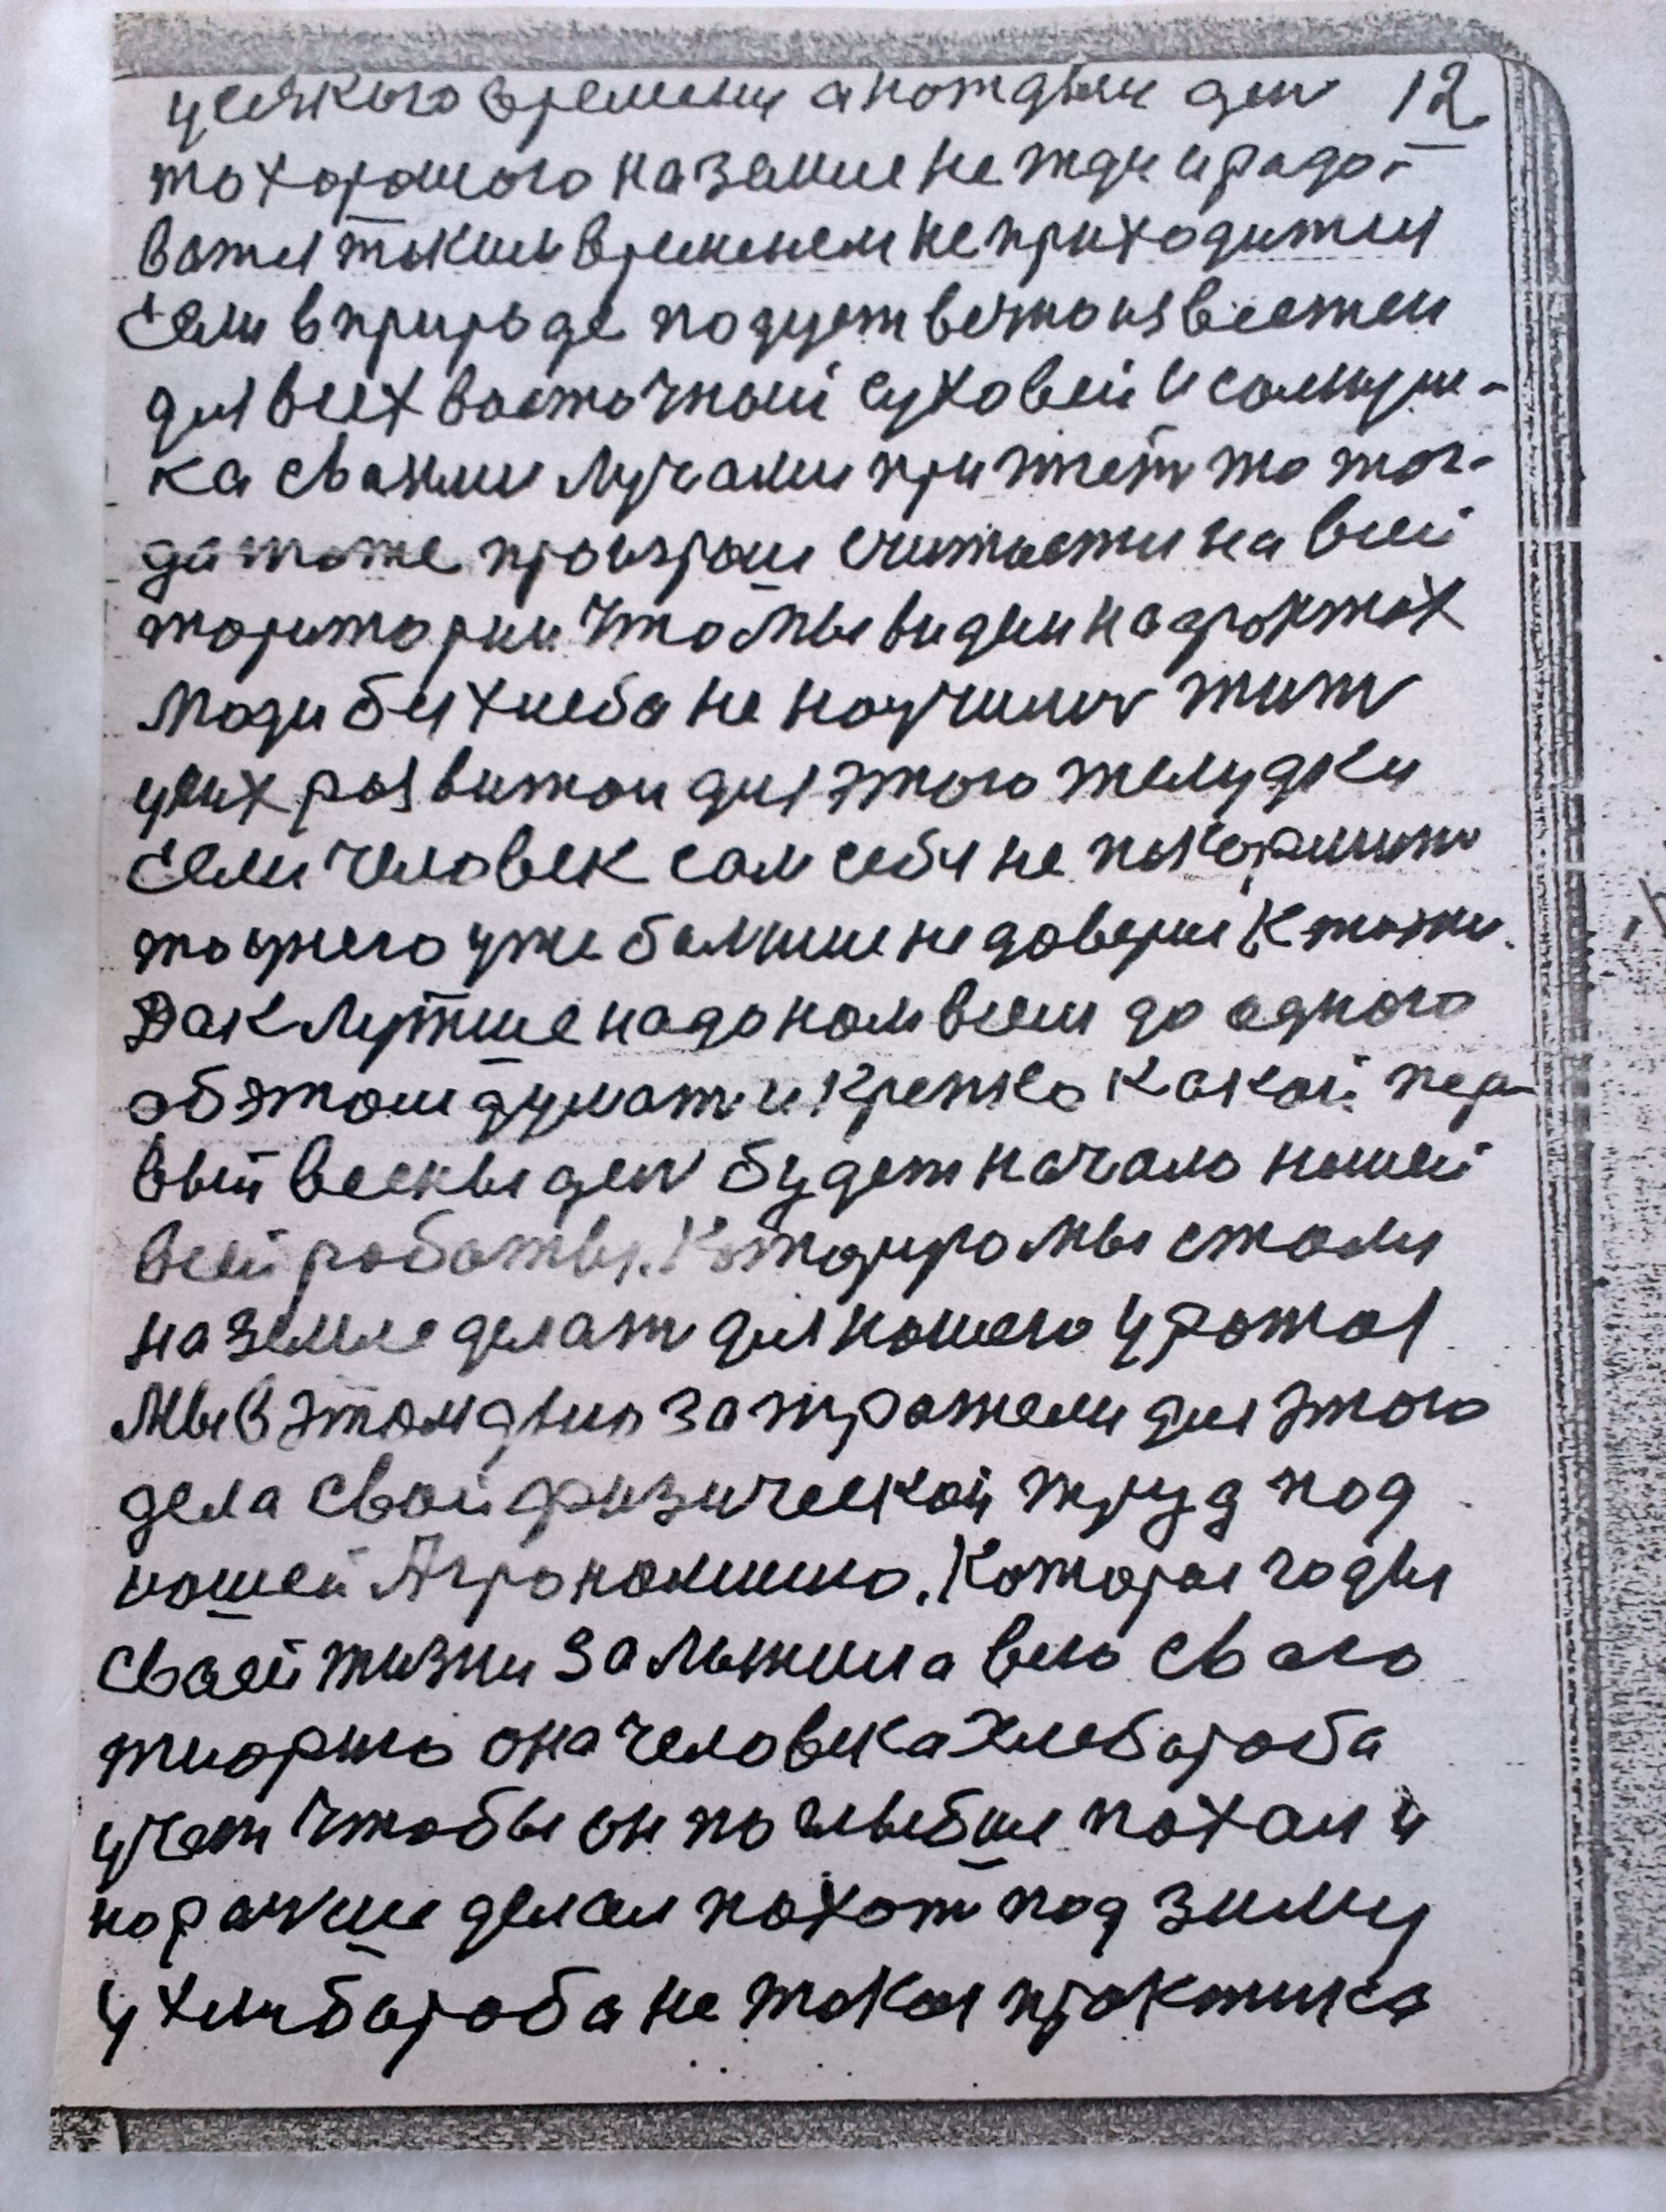 усякого времени а кождый ден 12
то хорошого на земле не жди и радо-
ватся таким временем не приходится
Если в природе подует ветто известен
для всех восточный суховей и солнуш-
ка своими лучами прижёт то тог-
да тоже проигрыш считается на всей
територии что мы видим на фронтах
Люди без хлеба не научились жит
у них развитои для этого желудки
Если человек сам себя не покормит
то у него уже больше недоверие к
Дак лутше надо нам всем до одного
об этом думат и крепко какой пер-
вый весны ден будет начало нашей
всей работы. Которую мы стали
на земле делат для нашего урожая
Мы в этом деле затратели для этого
дела свой физической труд под
нашей Агрономиию. Которая годы
своей жизни заложила всю своего
теорию она человека хлебороба
учет чтобы он по глыбше пахал и
нораньше делал пахот под зиму
у хлебороба не такая практика